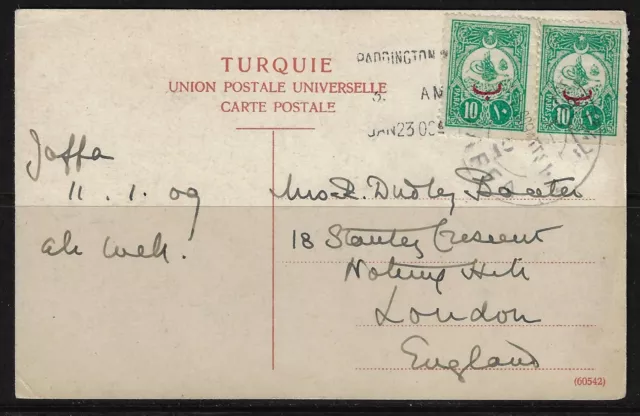 TURQUIE
UNION POSTALE UNIVERSELLE
CARTE POSTALE
PADDINGTON
3. AM
JAN 23 09
10 ١٠
10 ١٠
Jaffa
11. 1. 09
all well!
Mrs R. Dudley Baxter
18 Stanley Crescent
Notting Hill
London
England
(60542)